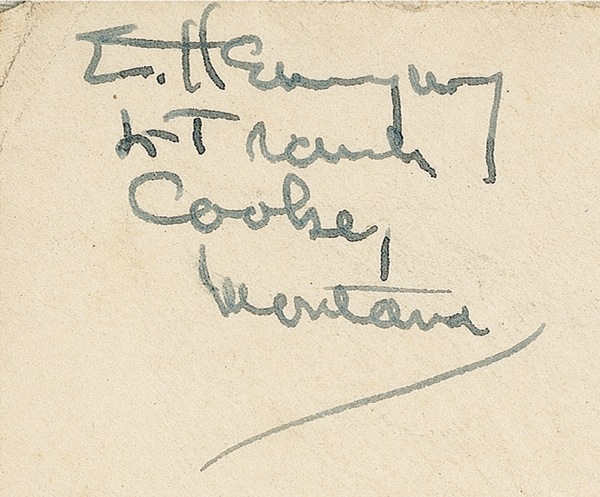 E. Hemingway
L-T ranch
Cooke,
Montana